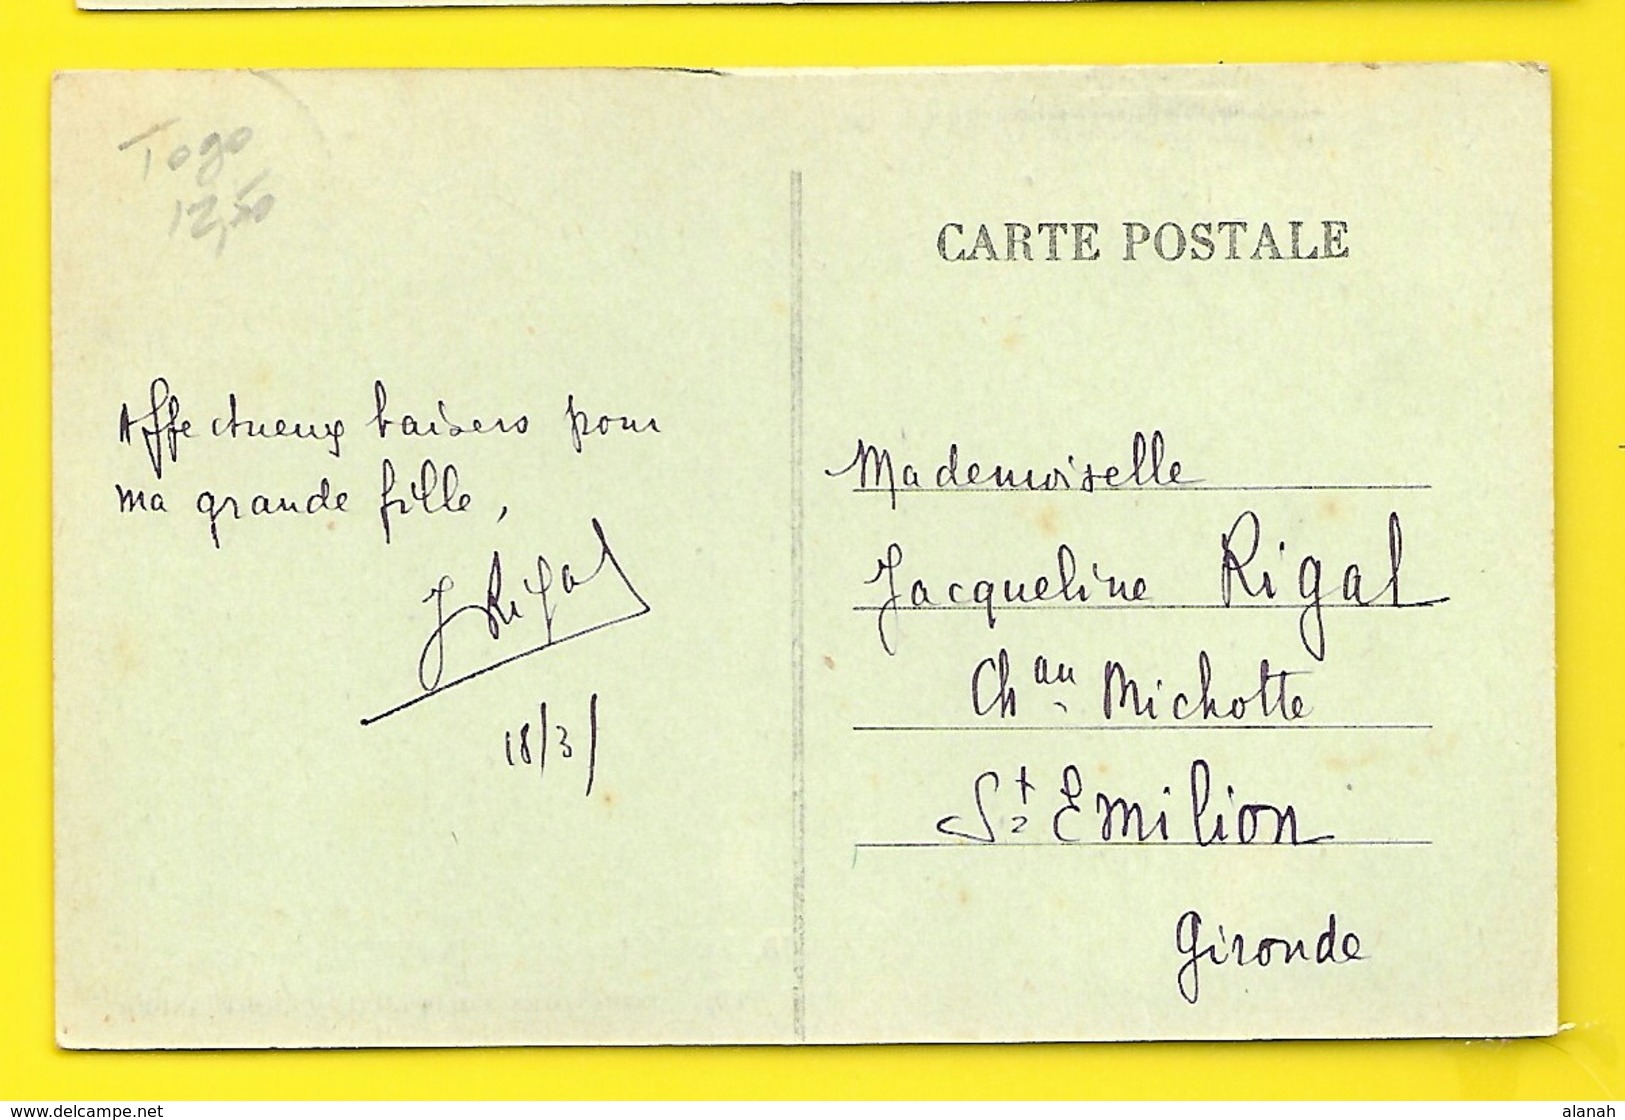 Togo
12,50
CARTE POSTALE
Affectueux baisers pour
ma grande fille,
J Rigal
18/3/
Mademoiselle
Jacqueline Rigal
Ch au Michotte
St Emilion
Gironde
www.delcampe.net
alanah